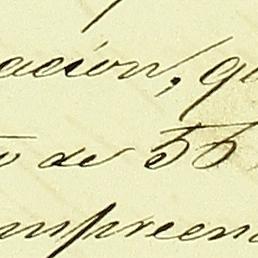 ación, qu
o de 55
mpreen